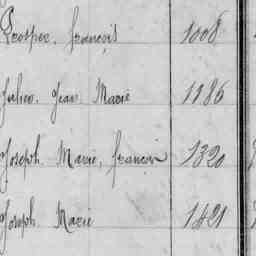 Prosper, françois 1008
Julien, Jean Marie 1186
Joseph Marie, françois 1320
Joseph Marie 1421